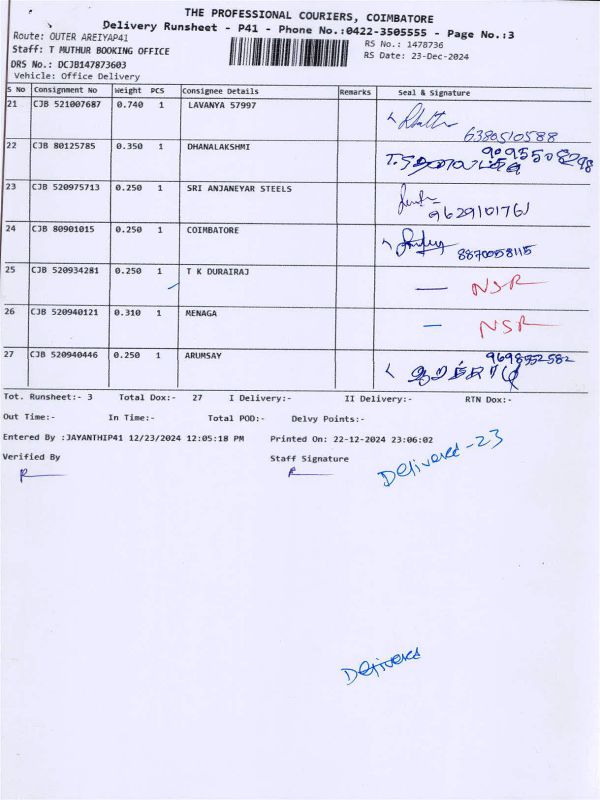 THE PROFESSIONAL COURIERS, COIMBATORE
Delivery Runsheet - P41 - Phone No.:0422-3505555 - Page No.:3
Route: OUTER AREIYAP41
RS No.: 1478736
Staff: T MUTHUR BOOKING OFFICE
RS Date: 23-Dec-2024
DRS No.: DCJB147873603
Vehicle: Office Delivery
S No Consignment No Weight PCS Consignee Details Remarks Seal & Signature
21 CJB 521007687 0.740 1 LAVANYA 57997
6380510588
22 CJB 80125785 0.350 1 DHANALAKSHMI
23 CJB 520975713 0.250 1 SRI ANJANEYAR STEELS
9629101761
24 CJB 80901015 0.250 1 COIMBATORE
8870058115
25 CJB 520934281 0.250 1 T K DURAIRAJ — NSR
26 CJB 520940121 0.310 1 MENAGA — NSR
27 CJB 520940446 0.250 1 ARUMSAY
Tot. Runsheet:- 3 Total Dox:- 27 I Delivery:- II Delivery:- RTN Dox:-
Out Time:- In Time:- Total POD:- Delvy Points:-
Entered By :JAYANTHIP41 12/23/2024 12:05:18 PM Printed On: 22-12-2024 23:06:02
Verified By Staff Signature
Delivered - 23
Delivered